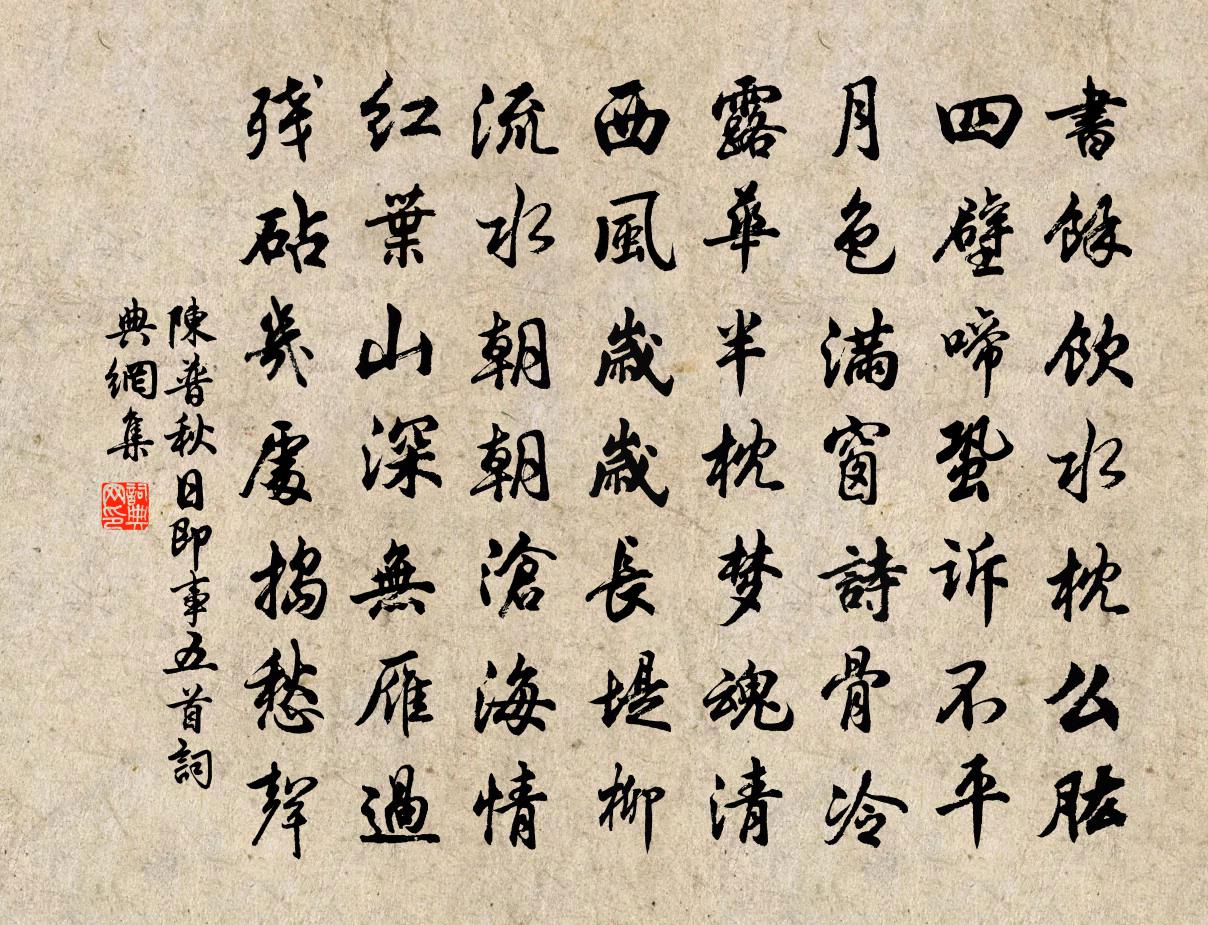 書餘飲水枕公肱
四壁啼蛩訴不平
月色滿窗詩骨冷
露華半枕梦魂清
西風歲歲長堤柳
流水朝朝滄海情
紅葉山深無雁過
残砧幾處搗愁聲
陳普秋日即事五首詞
典網集
詞典網印